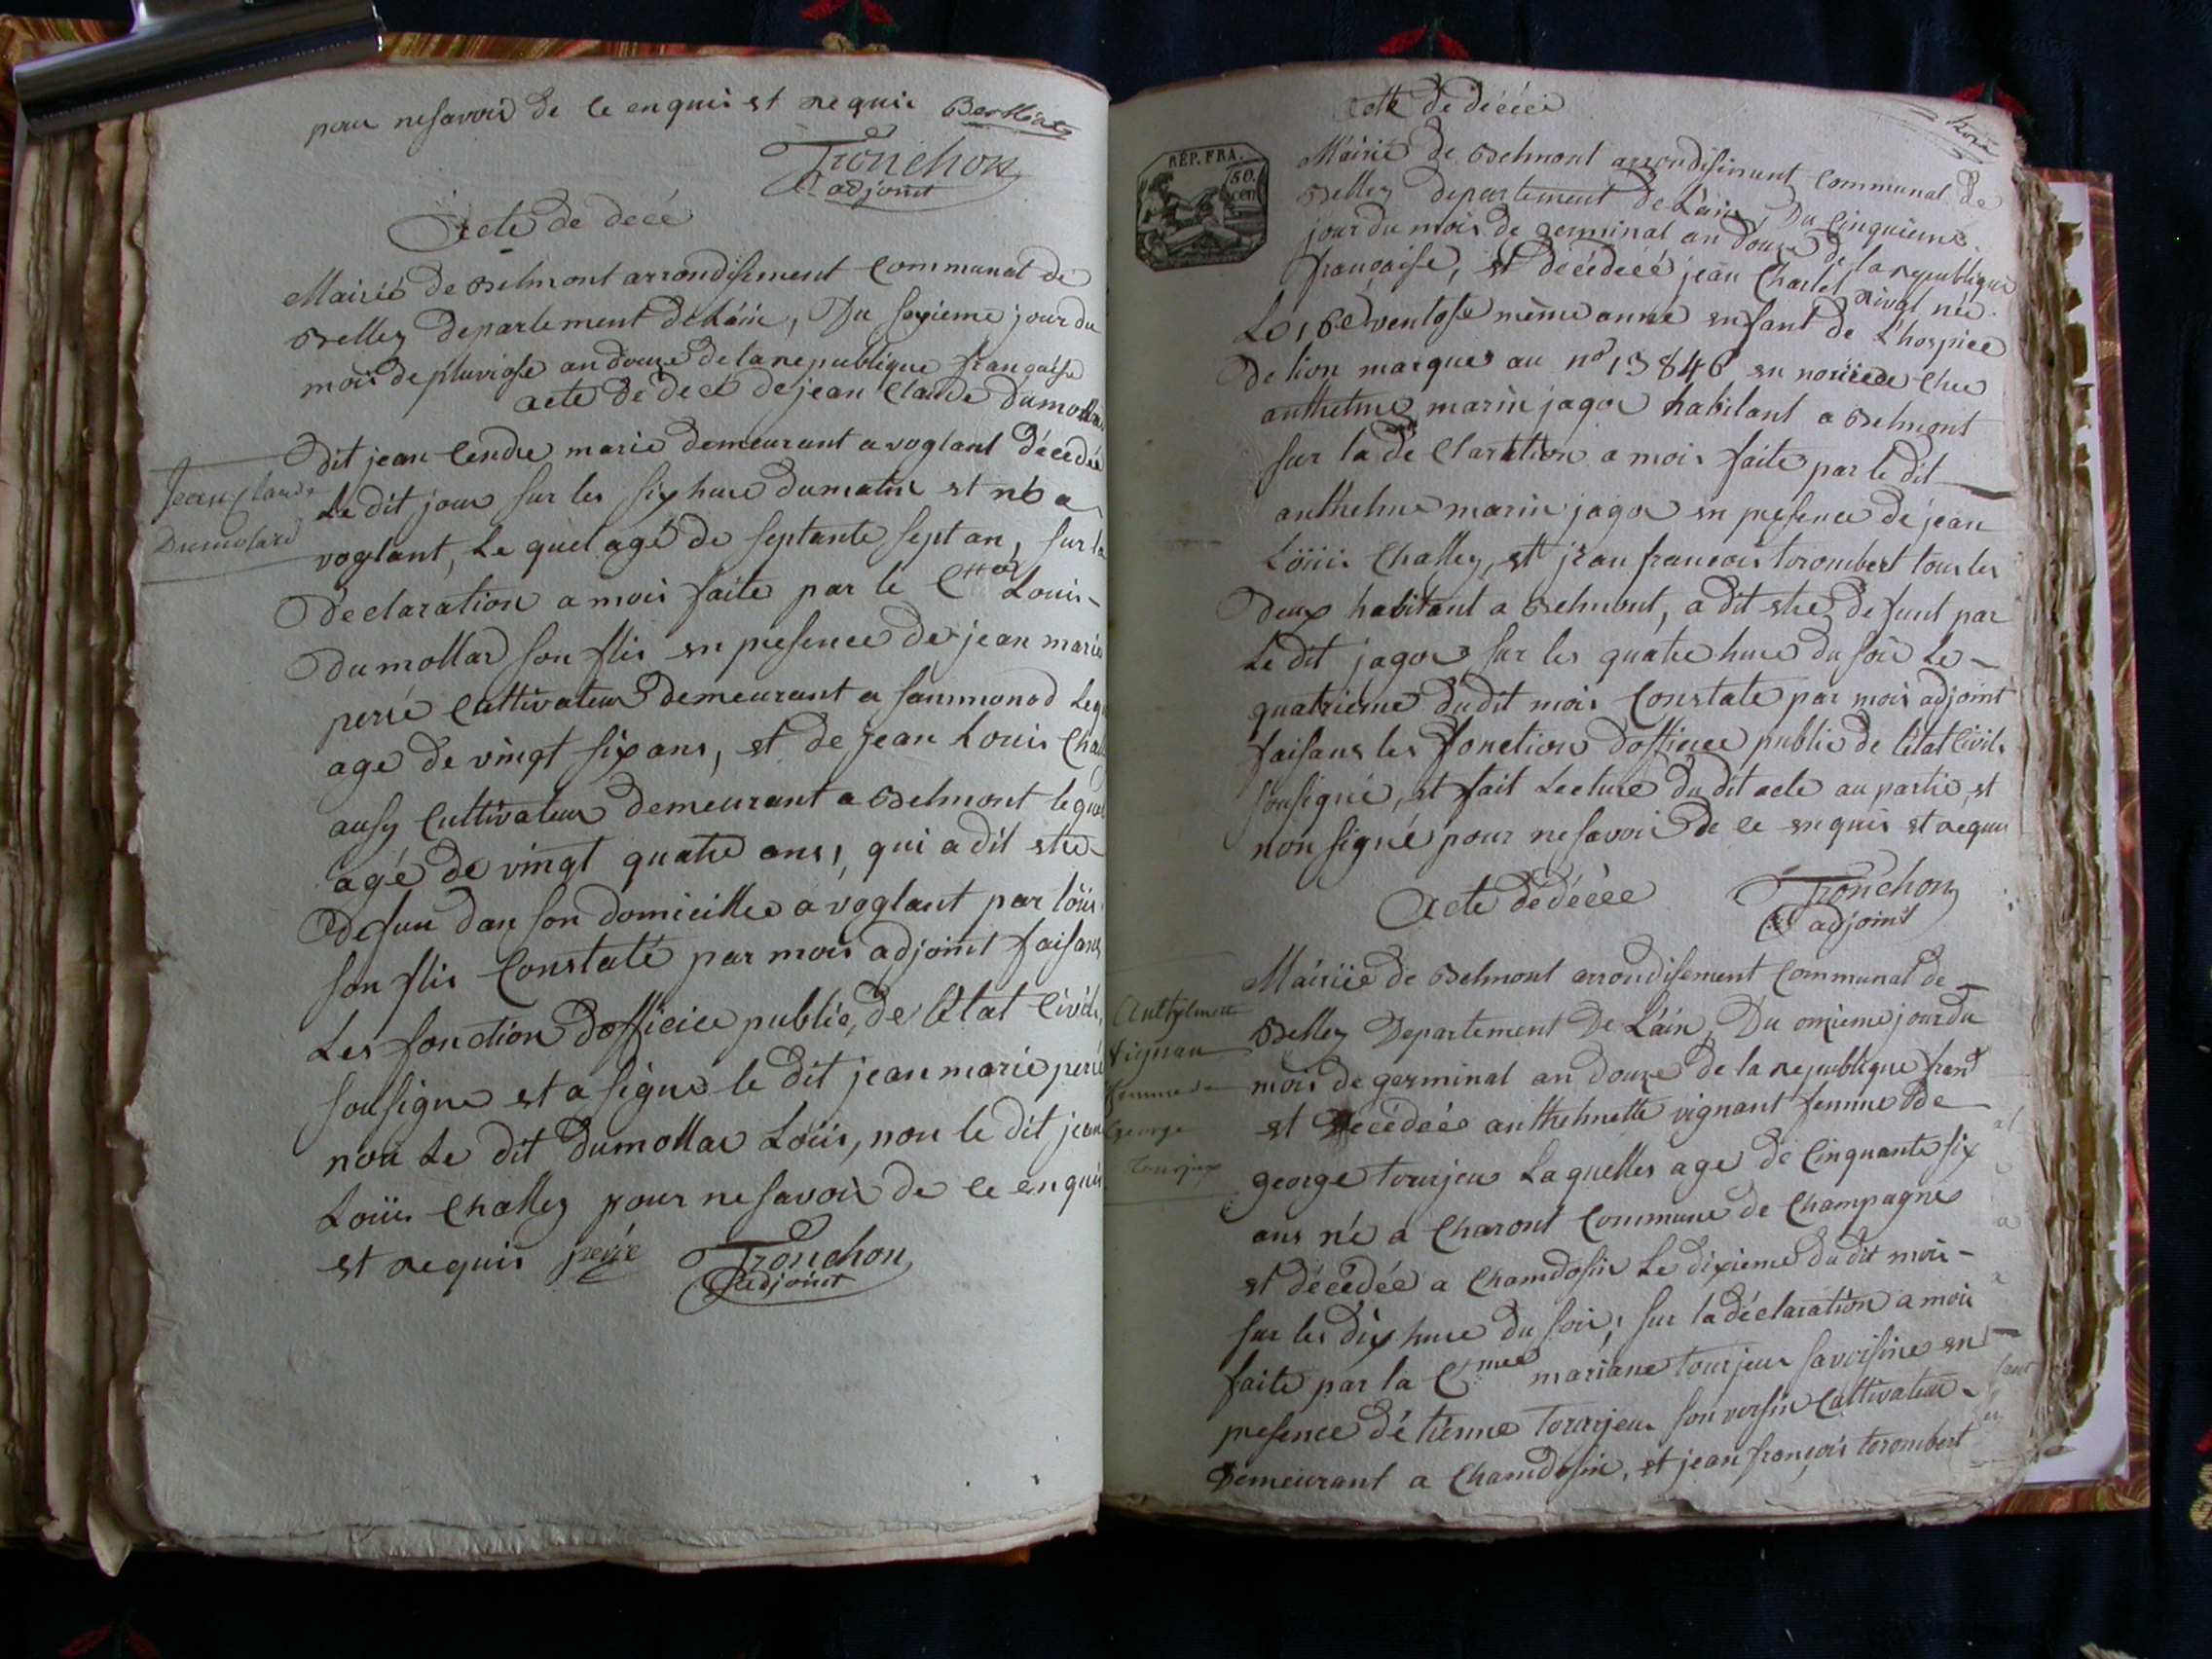 pour ne savoir de ce enquis et requis Berthier
Tronchon
adjoint
Acte de decé
Mairié de Belmont arrondisement Communal de
Belley departement de Lain, Du sixieme jour du
mois de pluviose an douze de la republique française
acte de decé de jean Claude Dumollar
Dit jean Cendre marie demeurant a voglant décédée
Le dit jour sur les six hure du matin et né a
voglant, Le quel agé de septante sept an, sur la
Declaration a mois faite par le Louis
Dumollar son flis en presence de jean marie
perié Cultivateur demeurant a sanmonod Leq
age de vingt six ans, et de jean Louis Chall
ausy Cultivateur demeurant a Belmont le quel
agé de vingt quatre ans, qui a dit etre
Defun dan son domicillie a voglant par Loüis
son flis Constaté par mois adjoint faisans
Les fonction d'officice public, de l'Etat Civils,
sousigne et a signé le dit jean marie perié
non Le dit Dumollar Loüis, non le dit jean
Loüis Challey pour ne savoir de ce enquis
et requis perié Tronchon
adjoint
Jean Claude
Dumolard
Acte de décéés
RÉP. FRA.
50.
cen
Mairié de Belmont arrondisement Communal de
Belley departement de Lain, Du Cinquieme
jour du mois de germinal an douze de la republique
française, et décédéé jean Charles Rival née
Le 16e ventose même anné enfant de L'hospice
de lion marques au no 13846 en nouricee Chee
anthelme marin jagor habitant a Belmont
sur la de Claration a mois faite par le dit
anthelme marin jagor en presence de jean
Loüis Challey, et jean francois torombert tous les
Deux habitant a Belmont, a dit etre de funt par
Le dit jagor sur les quatre hure du soir Le
quatrieme du dit mois Constate par mois adjoint
faisans les fonction dofficice public de l'état Civils
sousigné, et fait Lecture du dit acte au partie, et
non signé pour ne savoir de ce enquis et requis
Acte de décéé Tronchon
adjoint
Mairiée de Belmont arrondisement Communal de
Belley Departement De Lain, Du onzieme jour du
mois de germinal an douze de la republique
et décédéé anthelmette vignant femme de
george tourjeu Laquelles age de Cinquante six
ans né a Charont Commune de Champagne
et décédée a Chamdosin Le dixieme du dit mois
sur les dix hure du soir, sur la déclaration a mois
faite par la mariane tourjeur sa voisine en
presence détienne tourrjeu son voisin Cultivateur
Demeurant a Chamdosin, et jean françois torombert
Anthelmette
vignan
femme de
George
Tourjeux